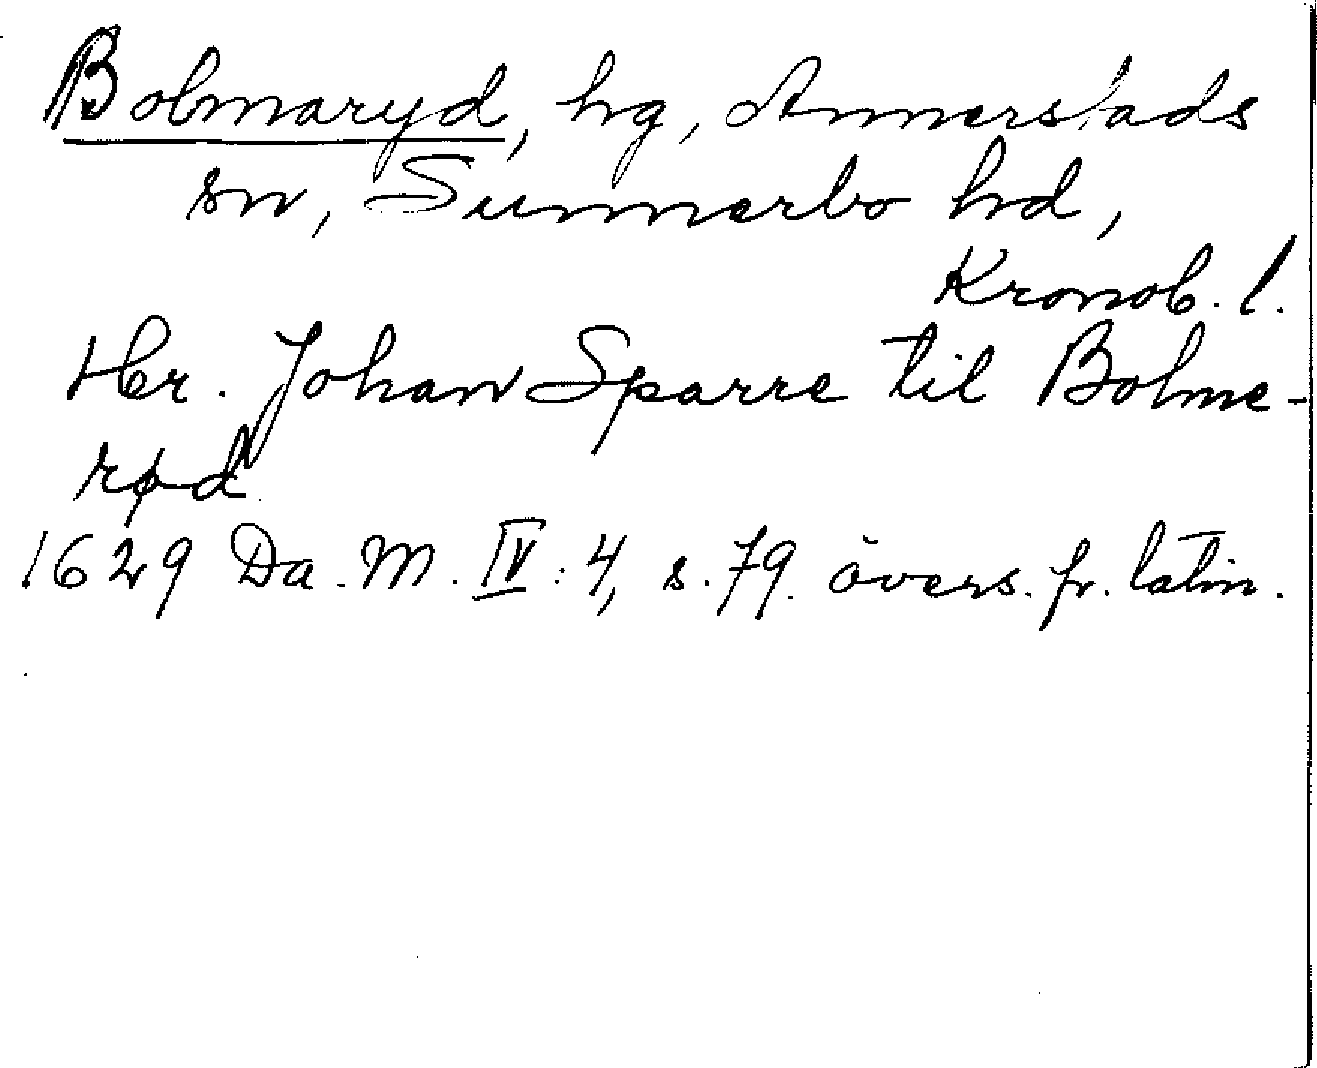 Bolmaryd, hg, Annerstads
sn, Sunnerbo hd,
Kronob. l.
Her. Johan Sparre til Bolme-
rød
1629 Da. M. IV: 4, s. 79. övers. fr. latin.